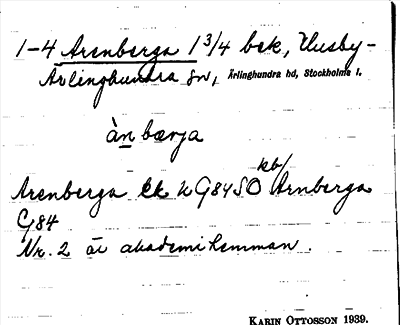 1-4 Arenberga 1 3/4 bek, Husby-
Ärlinghundra sn, Ärlinghundra hd, Stockholms l.
àn bærja
kb/
Arenberga kk k G84SO Arnberga
G84
Nr. 2 är akademihemman.
KARIN OTTOSSON 1939.